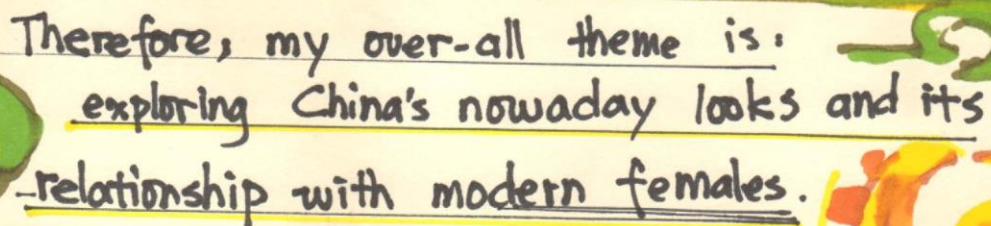 Therefore, my over-all theme is:
exploring China's nowaday looks and its
relationship with modern females.